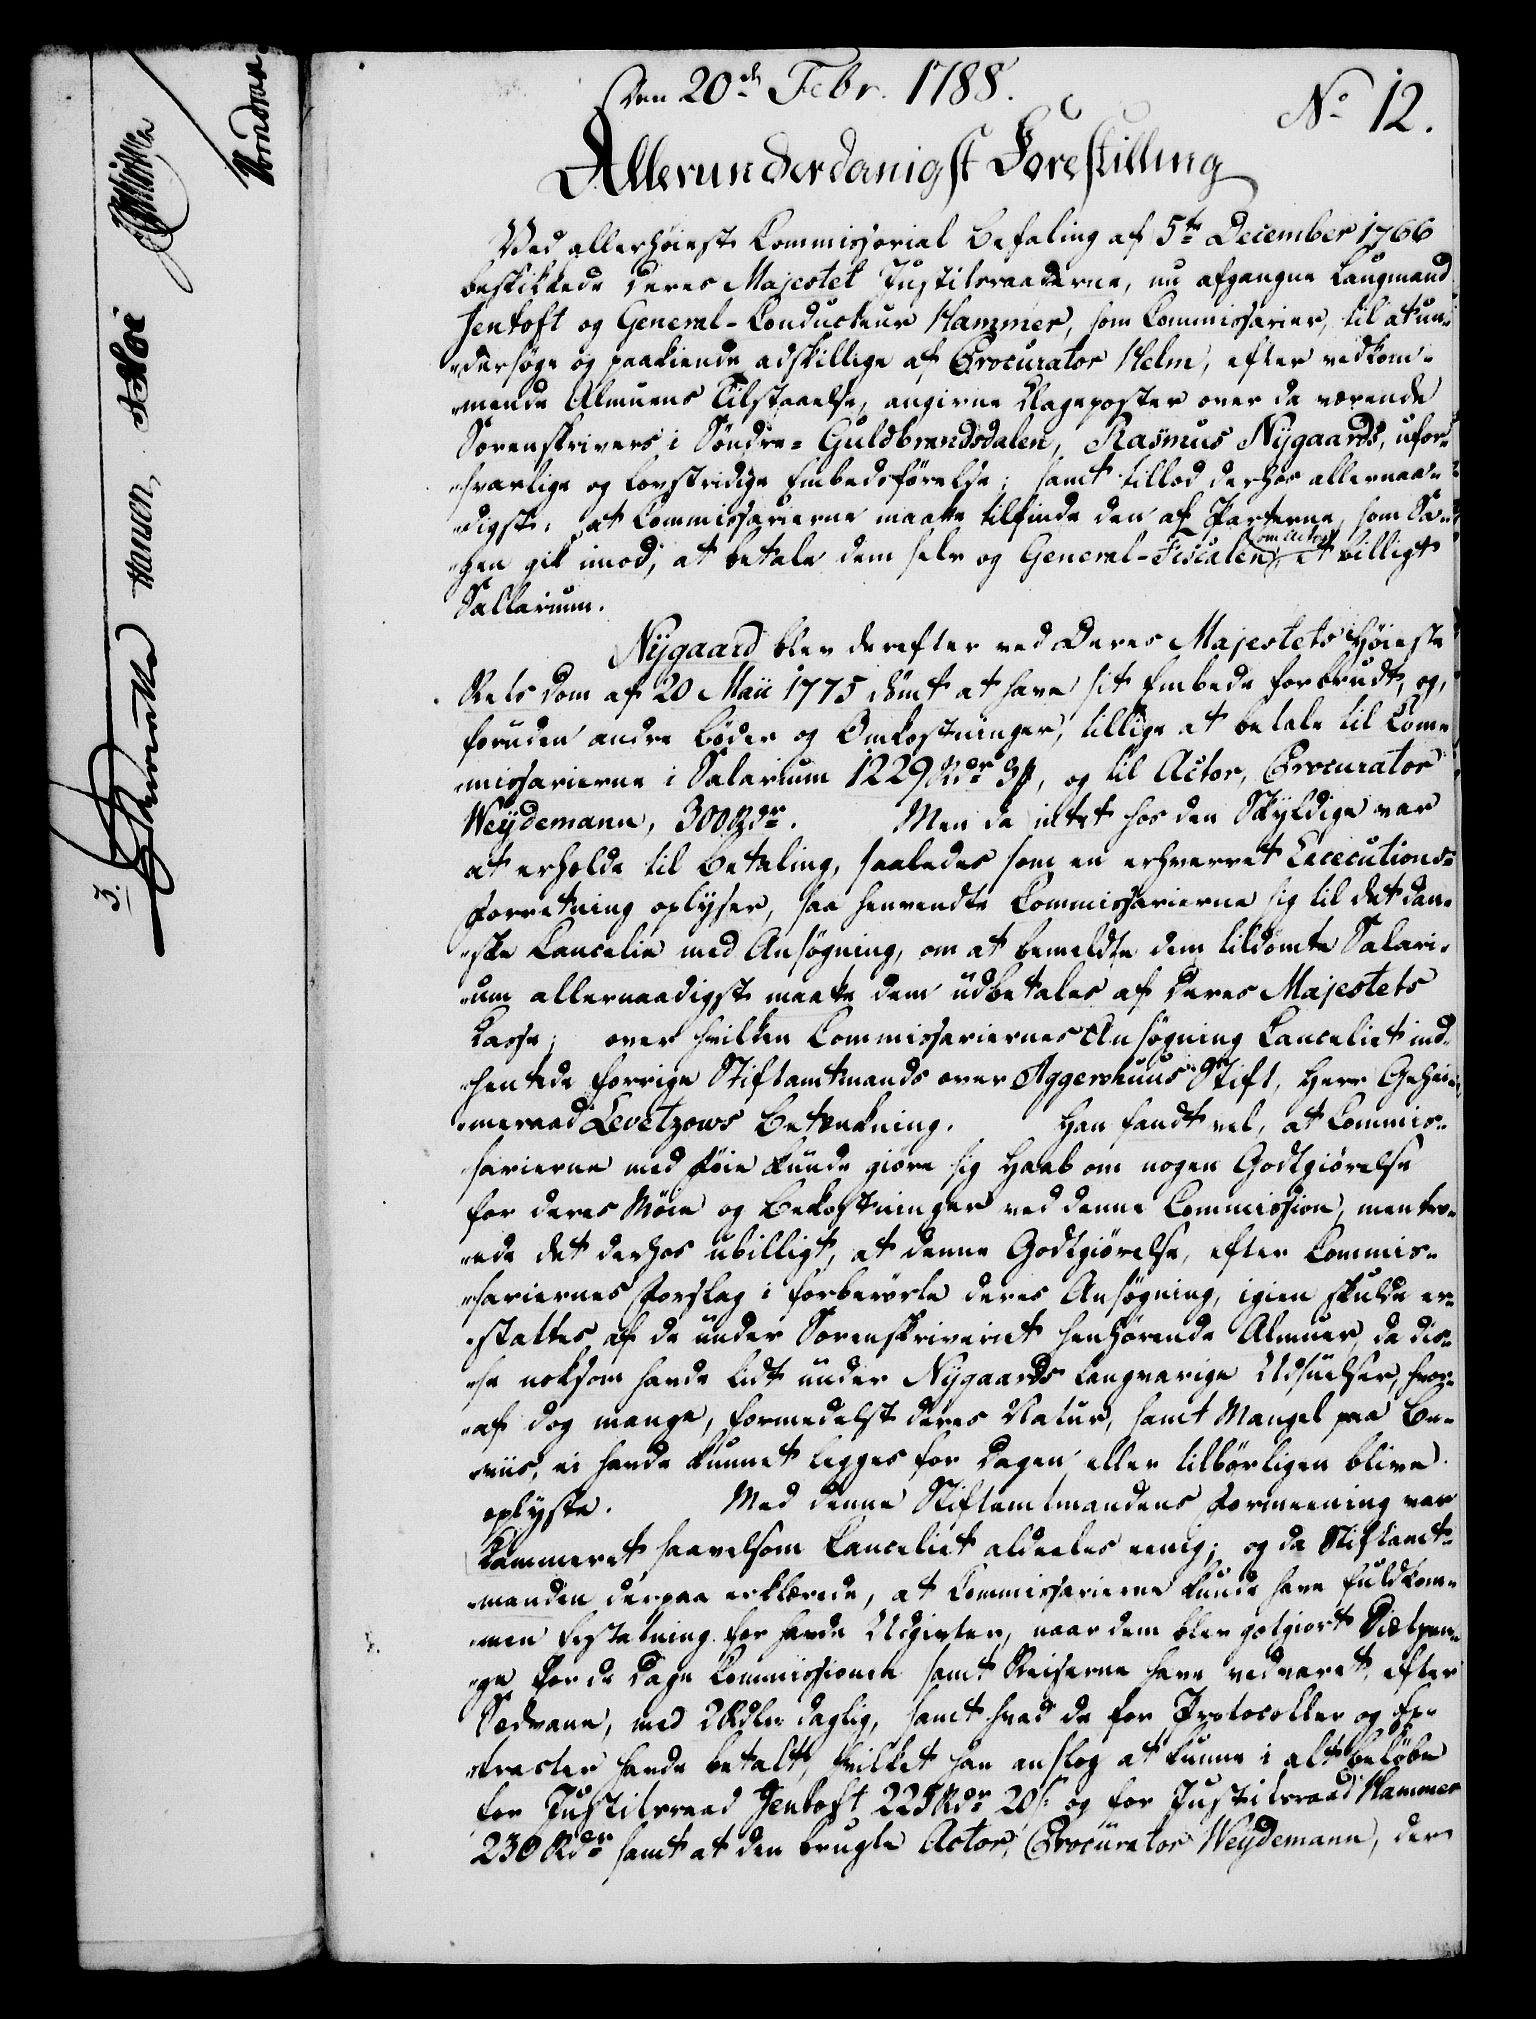 Den 20de Febr. 1788.
No 12.
Allerunderdanigst Forestilling
Ved allerhöieste Commissorial Befaling af 5te December 1766
beskikkede Deres Majestet Justitsraaderne, nu afgangne Laugmand
Jentoft og General-Conducteur Hammer, som Commissarier, til at un-
dersöge og paakiende adskillige af Procurator Helm, efter vedkom-
mende Almuens Tilstaaelse, angivne Klageposter over da værende
Sorenskrivers i Söndre-Guldbrandsdalen, Rasmus Nÿgaards, ufor-
svarlige og lovstridige Embedsförelse; samt tillod derhos allernaa-
digst, at Commissarierne maatte tilfinde den af Parterne, som Sa-
gen gik imod, at betale dem selv og General-Fiscalen som Actor et billigt
Sallarium.
Nÿgaard blev derefter ved Deres Majestets Höieste
Rets Dom af 20 Maii 1775 dömt at have sit Embede forbrudt, og,
foruden andre Böder og Omkostninger, tillige at betale til Com-
missarierne i Salarium 1229 Rdr 3 ß, og til Actor, Procurator
Weÿdemann, 300 Rdr. Men da intet hos den Skÿldige var
at erholde til Betaling, saaledes som en erhvervet Executions-
Forretning oplÿser, saa henvendte Commissarierne sig til det dan-
ske Cancelie med Ansögning, om at bemeldte dem tildömte Salari-
um allernaadigst maatte dem udbetales af Deres Majestets
Casse; over hvilken Commissariernes Ansögning Canceliet ind-
hentede forrige Stiftamtmands over Aggershuus Stift, Herr Gehei-
meraad Levetzows Betænkning. Han fandt vel, at Commis-
sarierne med Föie kunde giöre sig Haab om nogen Godtgiörelse
for deres Möie og Bekostninger ved denne Commission, men tro-
ede det derhos ubilligt, at denne Godtgiörelse, efter Commis-
sariernes Forslag i forberörte deres Ansögning, igien skulde er-
stattes af de under Sorenskriveriet henhörende Almuer, da dis-
se noksom havde lidt under Nÿgaards langvarige Udsuelser, hvor-
af dog mange, formedelst deres Natur, samt Mangel paa Be-
viis, ei havde kunnet legges for Dagen eller tilbörligen blive
oplÿste. Med denne Stiftamtmandens Formeening var
Kammeret saavelsom Canceliet aldeeles eenig; og da Stiftamt-
manden derpaa erklærede, at Commissarierne kunde have fuldkom-
men Erstatning for havde Udgivter, naar dem blev godtgiort Diætpen-
ge for de Dage Commissionen samt Reiserne have vedvaret, efter
Sædvane, med 2 Rdlr daglig, samt hvad de for Protocoller og Ex-
tracter havde betalt, hvilket han anslog at kunne i alt belöbe
for Justitsraad Jentoft 225 Rdr 20 ß og for Justitsraad Hammer
230 Rdr samt at den brugte Actor, Procurator Weÿdemann, der
3.
Hansen,